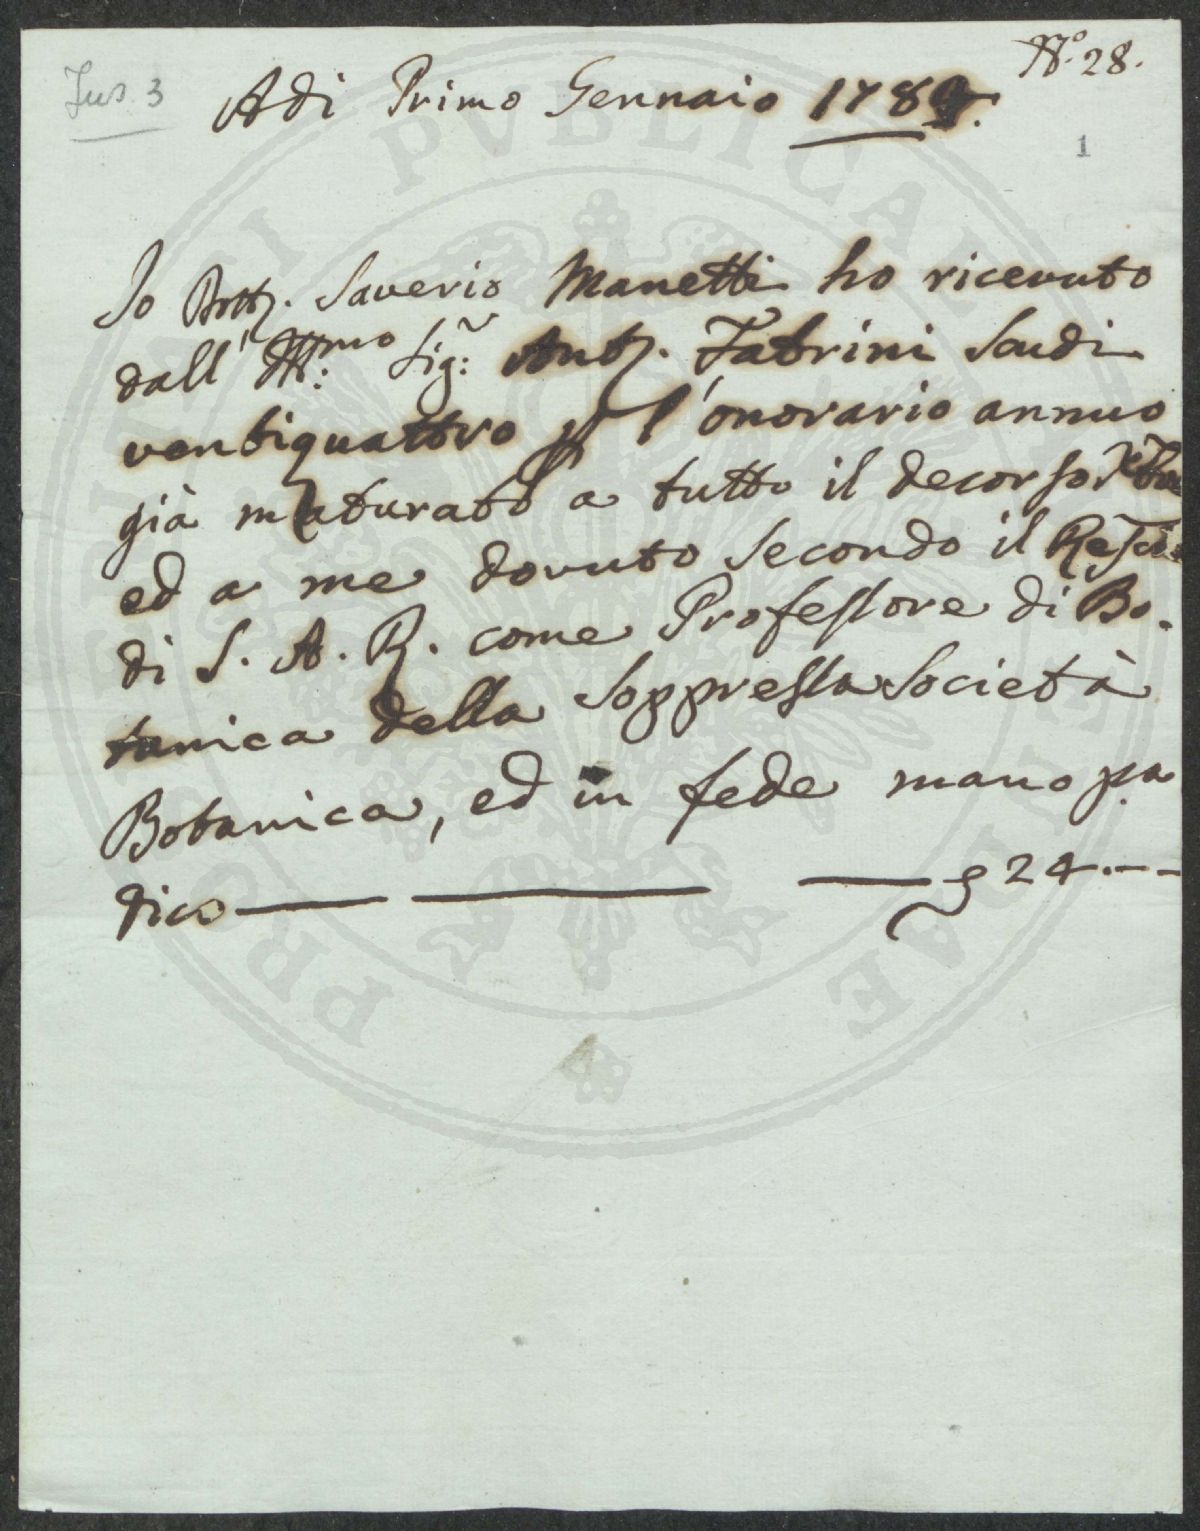 Ins. 3
N.° 28.
Adi Primo Gennaio 1784.
1
Io Dott. Saverio Manetti ho ricevuto
dall' Ill:mo Sig:r Ant. Fabrini Scudi
ventiquattro p l'onorario annuo
già maturato a tutto il decorso
ed a me dovuto secondo il
di S. A. R. come Professore di Bo-
tanica della soppressa Società
Botanica, ed in fede mano pa
dico — — — 24.--